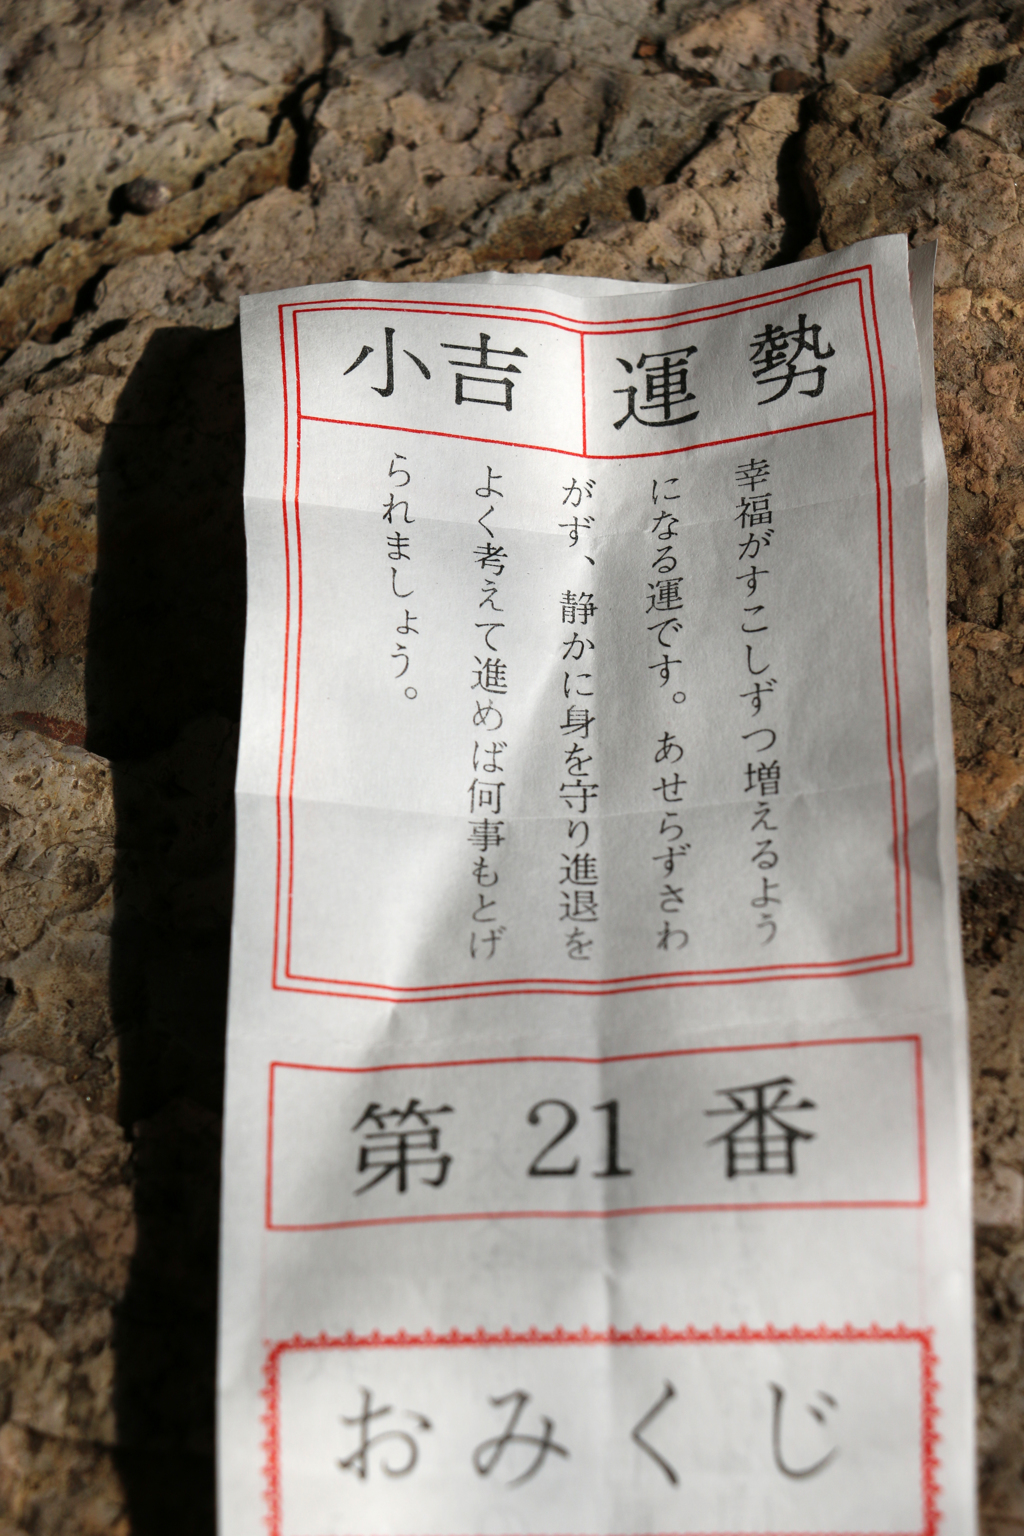 小吉 運勢
幸福がすこしずつ増えるよう
になる運です。あせらずさわ
がず、静かに身を守り進退を
よく考えて進めば何事もとげ
られましょう。
第21番
おみくじ